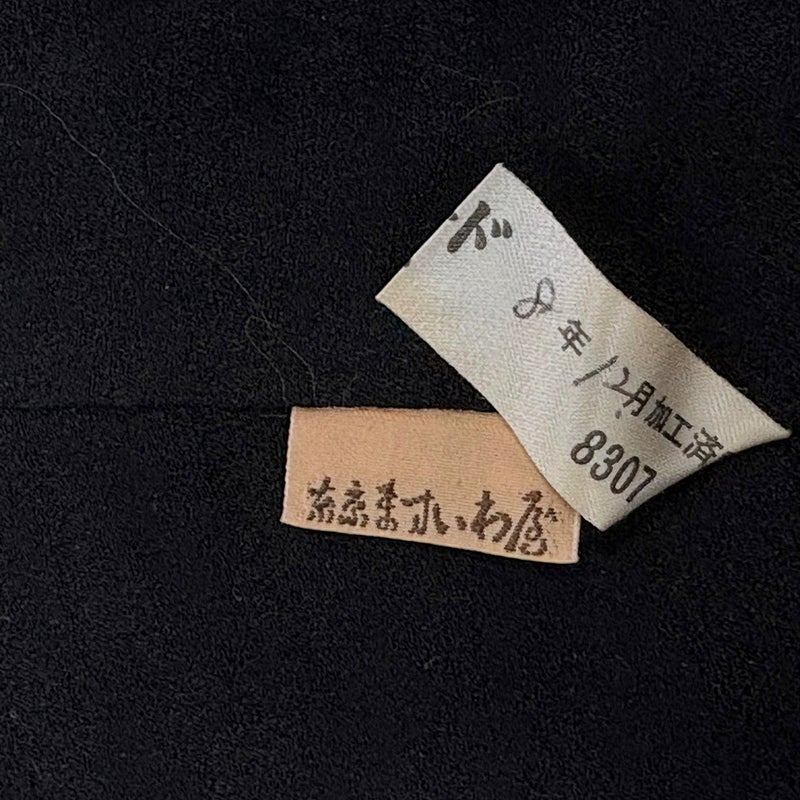 ド
8年12月加工済
8307
東京ますいわ屋